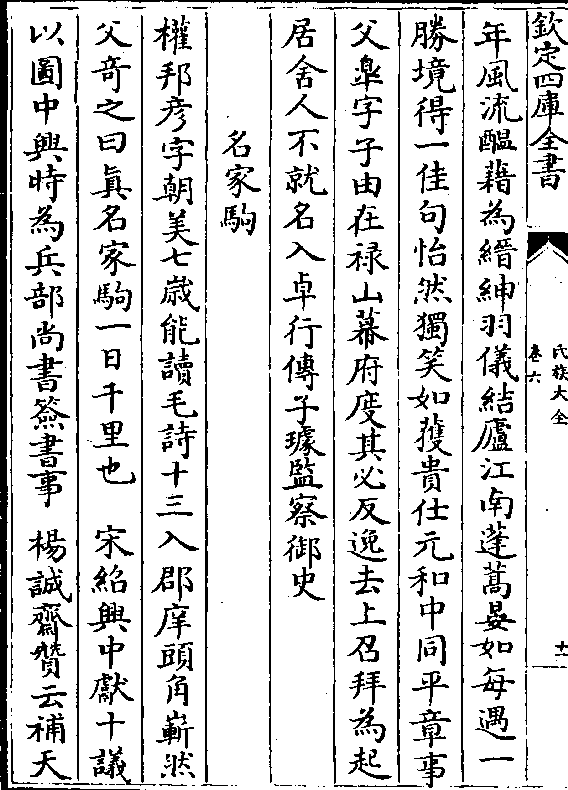 欽定四庫全書
氏族大全
卷六
十一
年風流醖藉為縉紳羽儀結廬江南蓬蒿晏如每遇一
勝境得一佳句怡然獨笑如獲貴仕元和中同平章事
父臯字子由在禄山幕府度其必反逸去上召拜為起
居舍人不就名入卓行傳子璩監察御史
名家駒
權邦彦字朝美七歳能讀毛詩十三入郡庠頭角嶄然
父竒之曰真名家駒一日千里也　宋紹興中獻十議
以圖中興時為兵部尚書簽書事　楊誠齋贊云補天